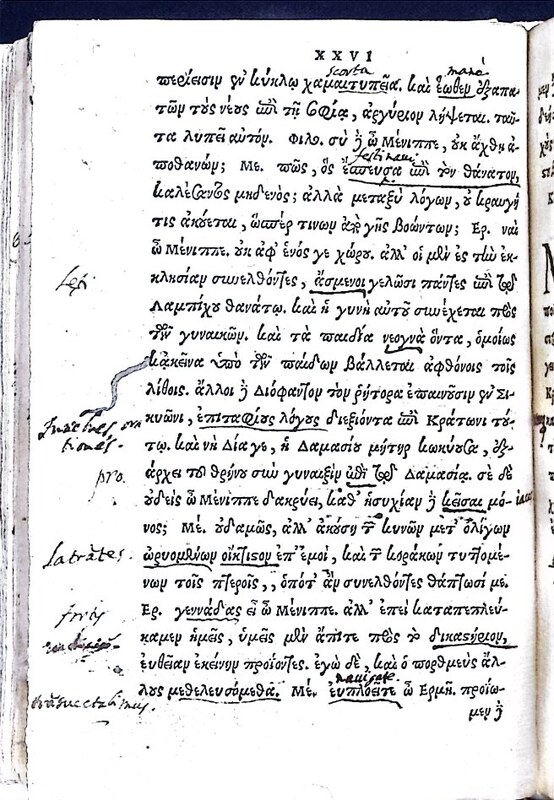 XXVI
scorta
manè
περίεισιν ἐν κύκλῳ χαμαιτυπεῖα. καὶ ἕωθεν ἐξαπα-
τῶν τοὺς νέους ἐπὶ τῇ σοφίᾳ, ἀργύριον λήψεται. ταῦ-
τα λυπεῖ αὐτόν. Φιλο. σὺ δὲ ὦ Μένιππε, οὐκ ἄχθῃ ἀ-
festinaui
ποθανών; Με. πῶς, ὃς ἔσπευσα ἐπὶ τὸν θάνατον,
καλέσαντος μηδενός; ἀλλὰ μεταξὺ λόγων, οὐ κραυγή
τις ἀκούεται, ὥσπέρ τινων ἀπὸ γῆς βοώντων; Ερ. ναὶ
ὦ Μένιππε. οὐκ ἀφ' ἑνός γε χώρου. ἀλλ' οἱ μὲν ἐς τὴν ἐκ-
κλησίαν συνελθόντες, ἄσμενοι γελῶσι πάντες ἐπὶ τῷ
Λαμπίχου θανάτῳ. καὶ ἡ γυνὴ αὐτοῦ συνέχεται πρὸς
τῶν γυναικῶν. καὶ τὰ παιδία νεογνὰ ὄντα, ὁμοίως
κἀκεῖνα ὑπὸ τῶν παίδων βάλλεται ἀφθόνοις τοῖς
λίθοις. ἄλλοι δὲ Διόφαντον τὸν ῥήτορα ἐπαινοῦσιν ἐν Σι-
κυῶνι, ἐπιταφίους λόγους διεξιόντα ἐπὶ Κράτωνι τού-
τῳ. καὶ νὴ Δία γε, ἡ Δαμασίου μήτηρ κωκύουσα, ἐξ-
άρχει τοῦ θρήνου σὺν γυναιξὶν ἐπὶ τῷ Δαμασίᾳ. σὲ δὲ
οὐδεὶς ὦ Μένιππε δακρύει, καθ' ἡσυχίαν δὲ κεῖσαι μό-
νος; Με. οὐδαμῶς, ἀλλ' ἀκούσῃ τῶν κυνῶν μετ' ὀλίγων
ὠρυομένων οἴκτιστον ἐπ' ἐμοί, καὶ τῶν κοράκων τυπτομέ-
νων τοῖς πτεροῖς, , ὁπότ' ἂν συνελθόντες θάπτωσί με.
Ερ. γεννάδας εἶ ὦ Μένιππε. ἀλλ' ἐπεὶ καταπεπλεύ-
καμεν ἡμεῖς, ὑμεῖς μὲν ἄπιτε πρὸς τὸ δικαστήριον,
εὐθεῖαν ἐκείνην προϊόντες. ἐγὼ δὲ, καὶ ὁ πορθμεὺς ἄλ-
nauigate
λους μετελευσόμεθα. Με. εὐπλοεῖτε ὦ Ερμῆ. προΐω-
μεν δὲ
pro.
Latrātes.
fortis